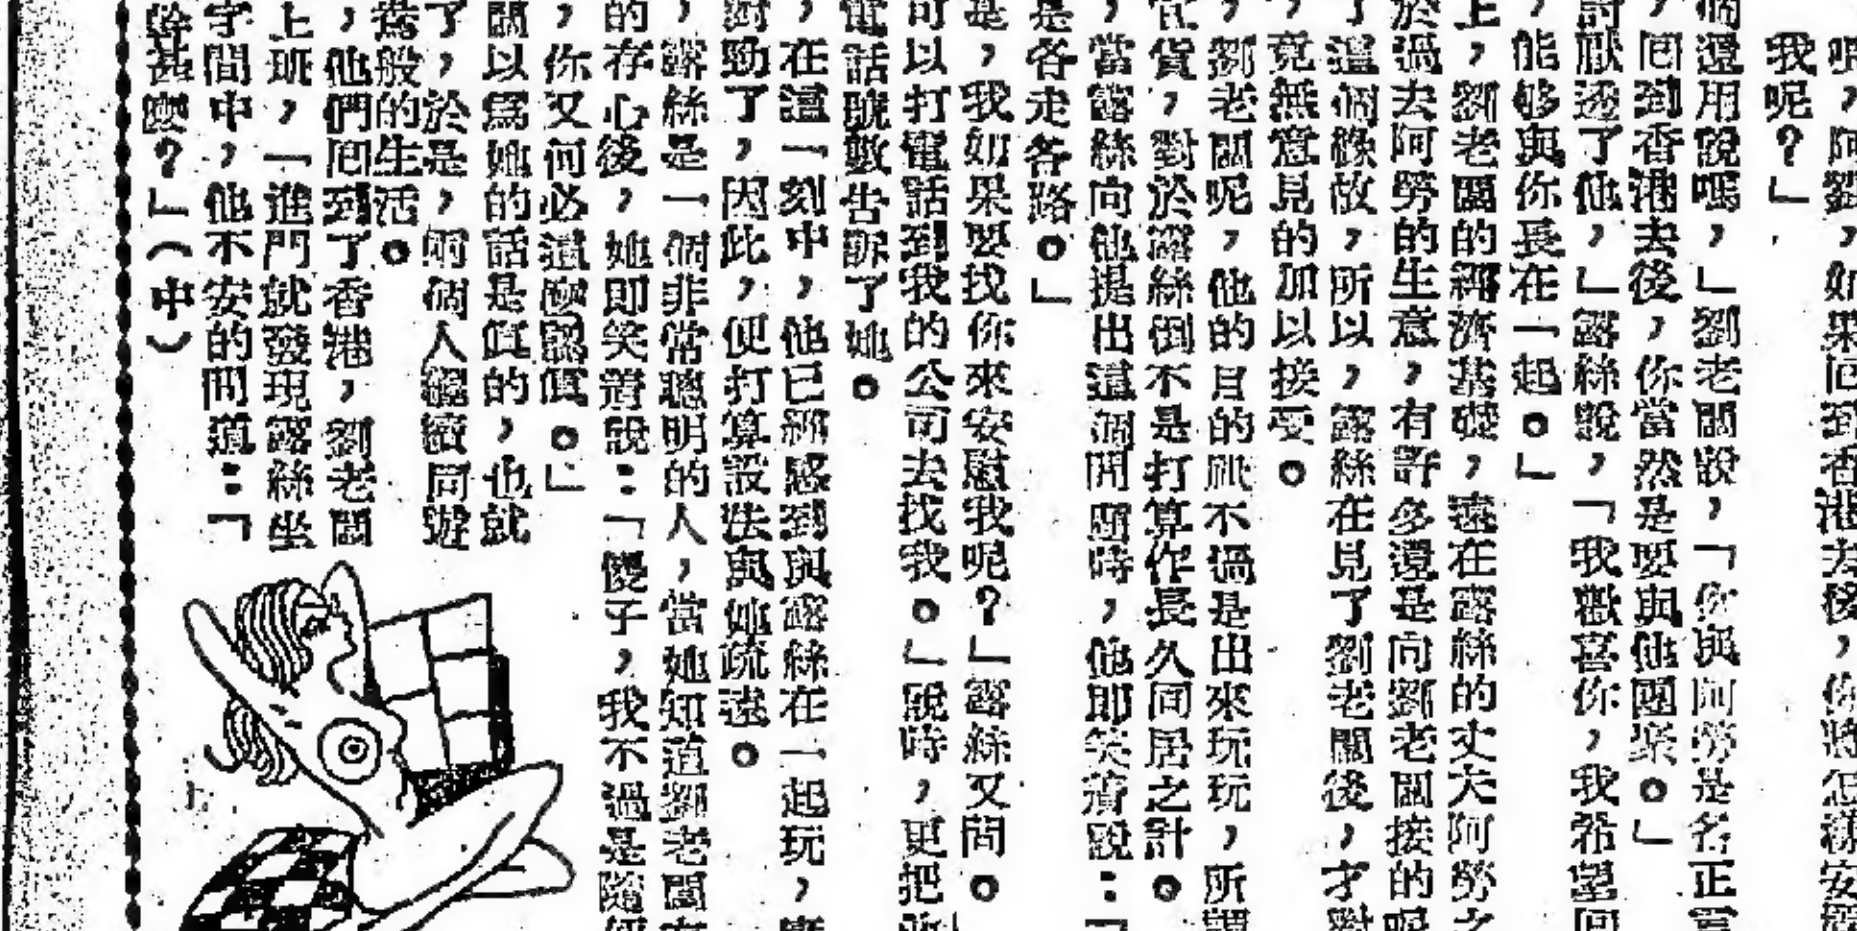 ，阿劉，如果囘到香港去後，你將怎樣安
我呢？」
個還用說嗎，」劉老闆說，「你與阿勞是名正
，囘到香港去後，你當然是要與他團聚。」
討厭透了他，」露絲說，「我歡喜你，我希望囘
，能够與你長在一起。」
上，劉老闆的經濟基礎，遠在露絲的丈夫阿勞之
於過去阿勞的生意，有許多還是向劉老闆接的呢
了這個緣故，所以，露絲在見了劉老闆後，才對
，竟無意見的加以接受。
，劉老闆呢，他的目的祇不過是出來玩玩，所謂
宜貨，對於露絲倒不是打算作長久同居之計。
，當露絲向他提出這個問題時，他即笑着說：「
是各走各路。」
是，我如果要找你來安慰我呢？」露絲又問。
可以打電話到我的公司去找我。」說時，更把
電話號數告訴了她。
，在這一刻中，他已經感到與露絲在一起玩，
對勁了，因此，便打算設法與她疏遠。
，露絲是一個非常聰明的人，當她知道劉老闆
的存心後，她即笑着說：「傻子，我不過是隨
，你又何必這麽認眞。」
闆以爲她的話是眞的，也就
了，於是，兩個人繼續同遊
鴦般的生活。
，他們囘到了香港，劉老闆
上班，一進門就發現露絲坐
字間中，他不安的問道：「
幹甚麽？」（中）